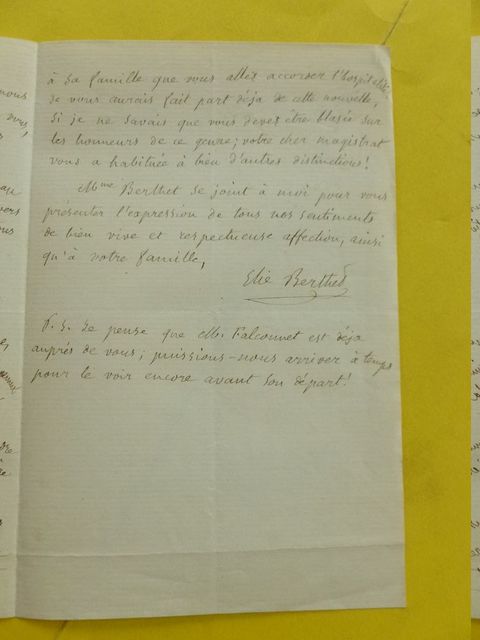 à sa famille que vous allez accorder l'hospitalité,
je vous aurais fait part déjà de cette nouvelle,
si je ne savais que vous devez être blasée sur
les honneurs de ce genre; votre cher magistrat
vous a habituée à bien d'autres distinctions!
Mme Berthet se joint à moi pour vous
présenter l'expression de tous nos sentiments
de bien vive et respectueuse affection, ainsi
qu'à votre famille,
Elie Berthet
P. S. Je pense que M. Falconnet est déjà
auprès de vous; puissions-nous arriver à temps
pour le voir encore avant son départ!